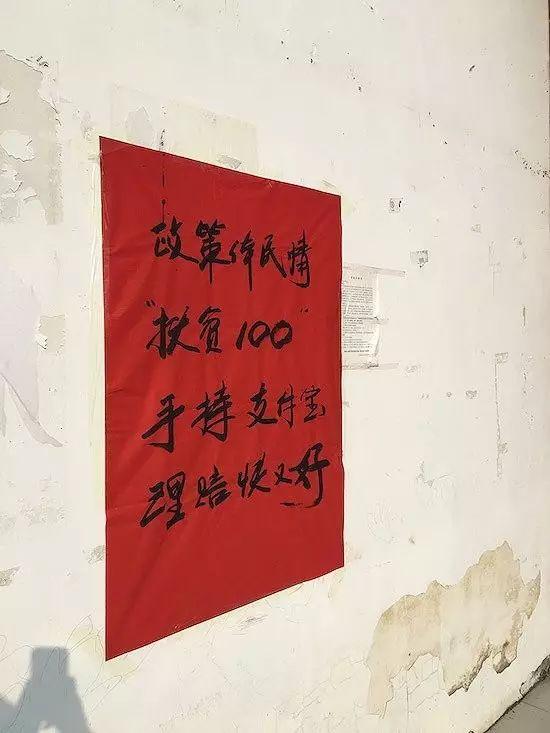 政策伴民情
“扶贫100”
手持支付宝
理赔快又好